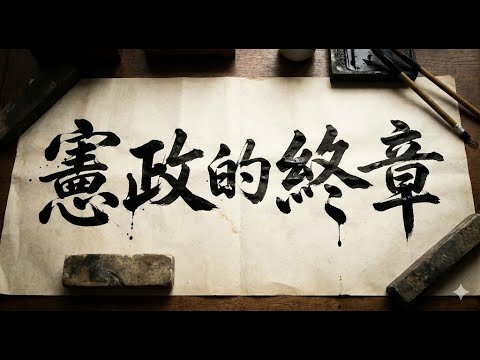 憲政的終章